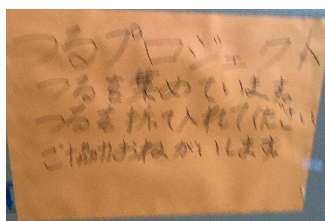 つるプロジェクト
つるを集めています
つるを折て入れてください
ご協力おねがいします